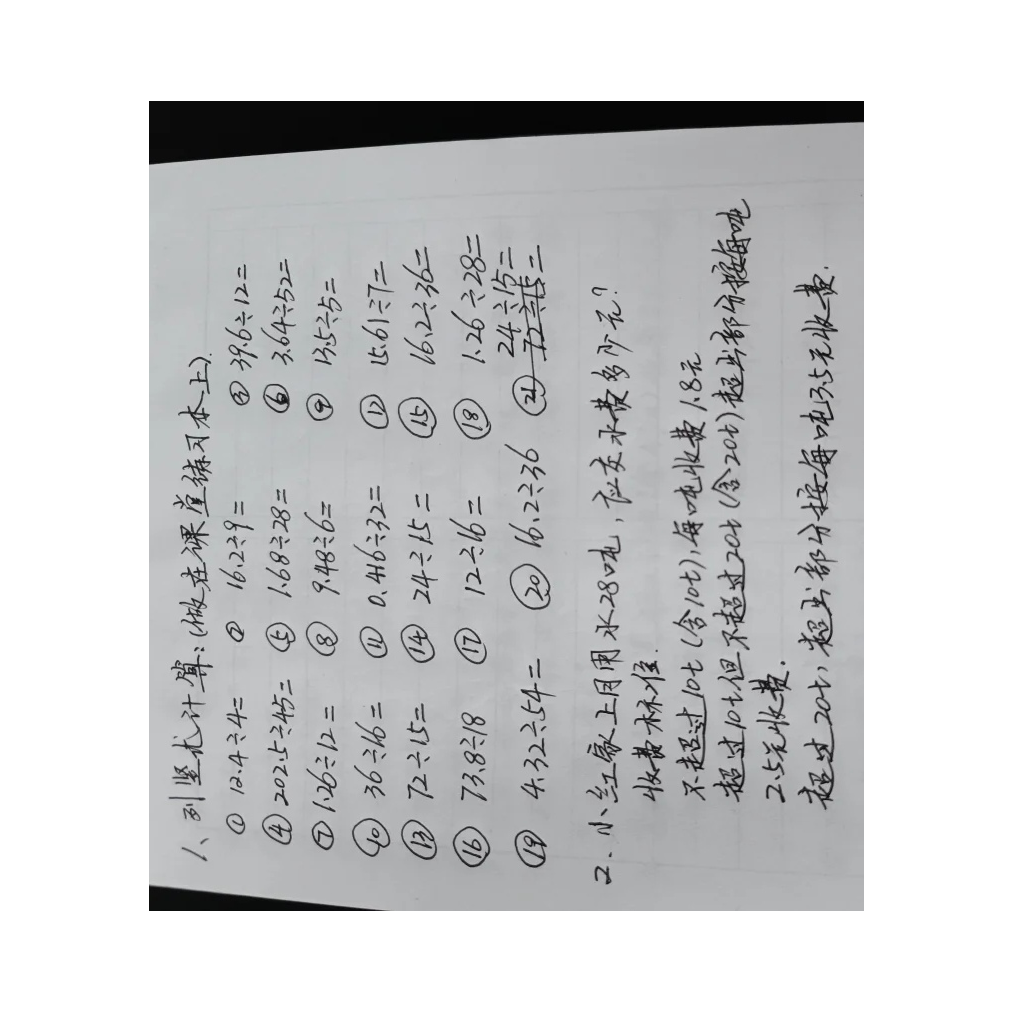 1、列竖式计算:(做在课堂练习本上).
① 12.4÷4= ② 16.2÷9= ③ 39.6÷12=
④ 202.5÷45= ⑤ 1.68÷28= ⑥ 3.64÷52=
⑦ 1.26÷12= ⑧ 9.48÷6= ⑨ 13.5÷5=
⑩ 36÷16= ⑪ 0.416÷32= ⑫ 15.61÷7=
⑬ 72÷15= ⑭ 24÷15= ⑮ 16.2÷36=
⑯ 73.8÷18 ⑰ 12÷16= ⑱ 1.26÷28=
24÷15=
⑲ 4.32÷54= ⑳ 16.2÷36 ㉑ 72÷15=
2、小红家上月用水28吨,应交水费多少元?
收费标准.
不超过10t(含10t),每吨收费1.8元
超过10t但不超过20t(含20t)超出部分按每吨
2.5元收费.
超过20t,超出部分按每吨3.5元收费.